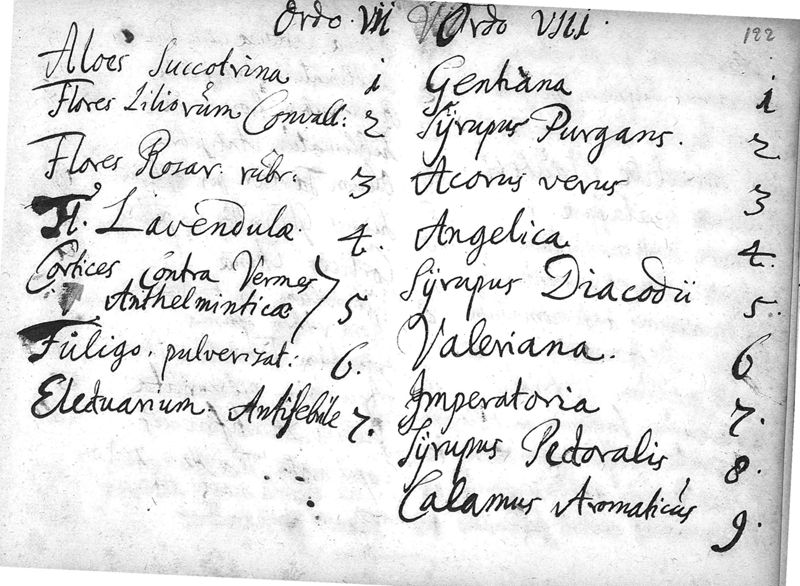 Ordo VII
Aloes Succotrina 1
Flores Liliorum Convall: 2
Flores Rosar. rubr. 3
Fl. Lavendulæ. 4.
Cortices contra Vermes
Anthelminticæ } 5
Fuligo. pulverizat: 6.
Electuarium Antifebrile 7.
Ordo VIII.
122
Gentiana 1
Syrupus Purgans. 2
Acorus verus 3
Angelica 4.
Syrupus Diacodii 5.
Valeriana. 6
Imperatoria 7.
Syrupus Pectoralis 8.
Calamus Aromaticus 9.